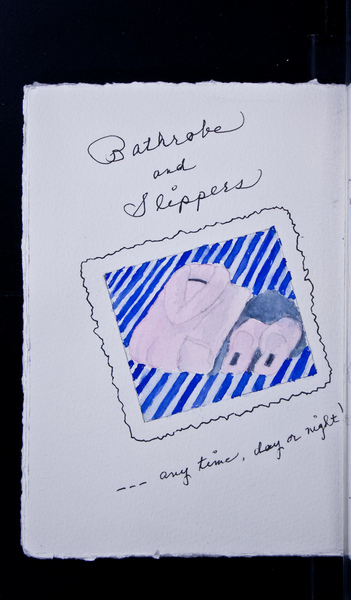 Bathrobe
and
Slippers
--- any time, day or night!